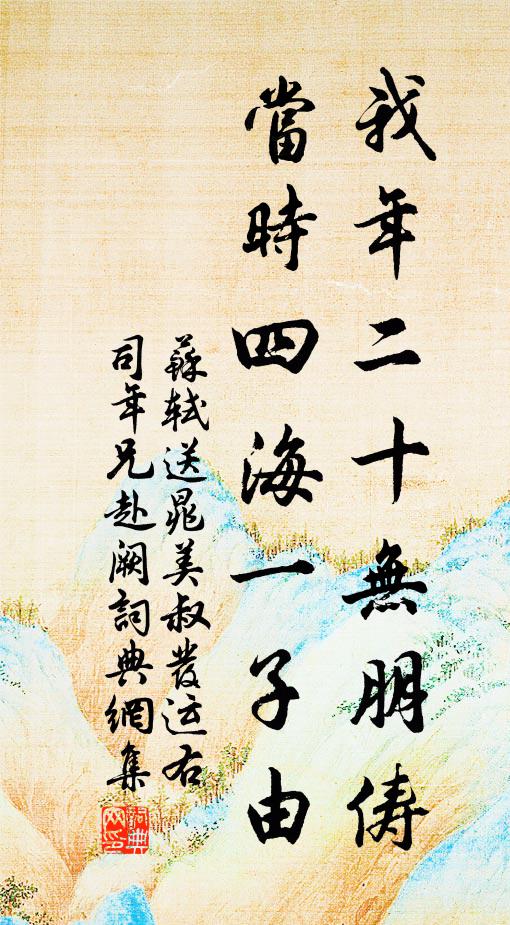 我年二十無朋儔
當時四海一子由
蘇軾送晁美叔發運右
司年兄赴闕詞典網集
詞典
网印